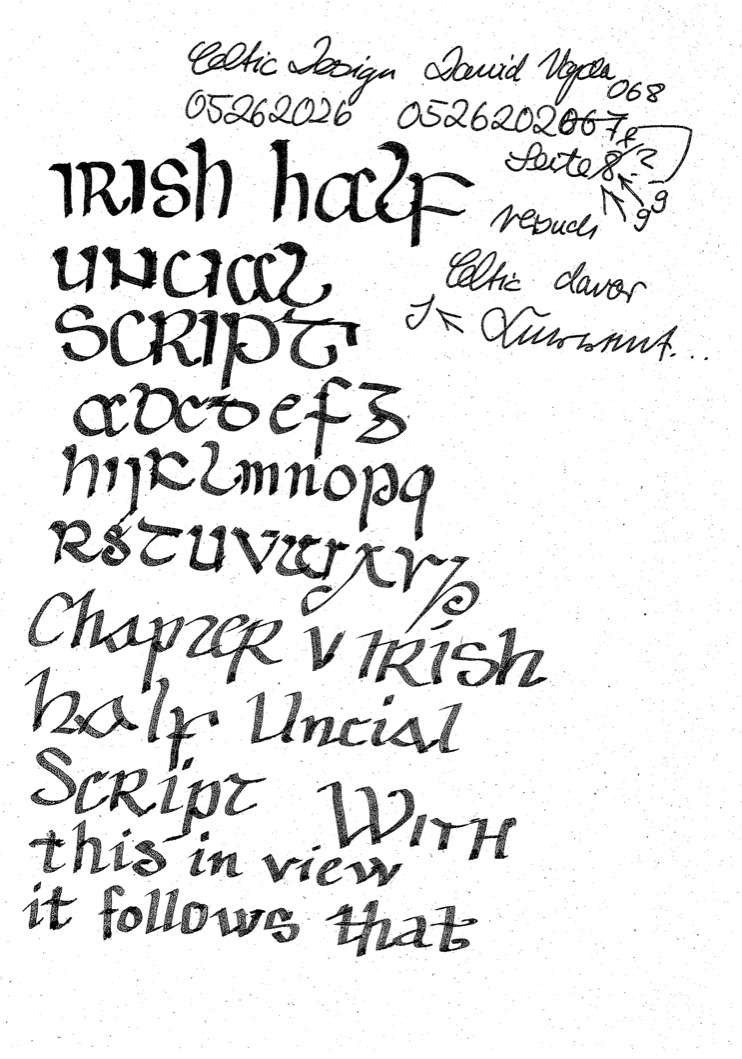 Celtic Design David
068
05262026 0526202667
Seite 8?
9 9
Irish half
Celtic davor
uncial
Script
abcdefg
hijklmnopq
rstuvwxyz
Chapter V Irish
half Uncial
Script With
this in view
it follows that